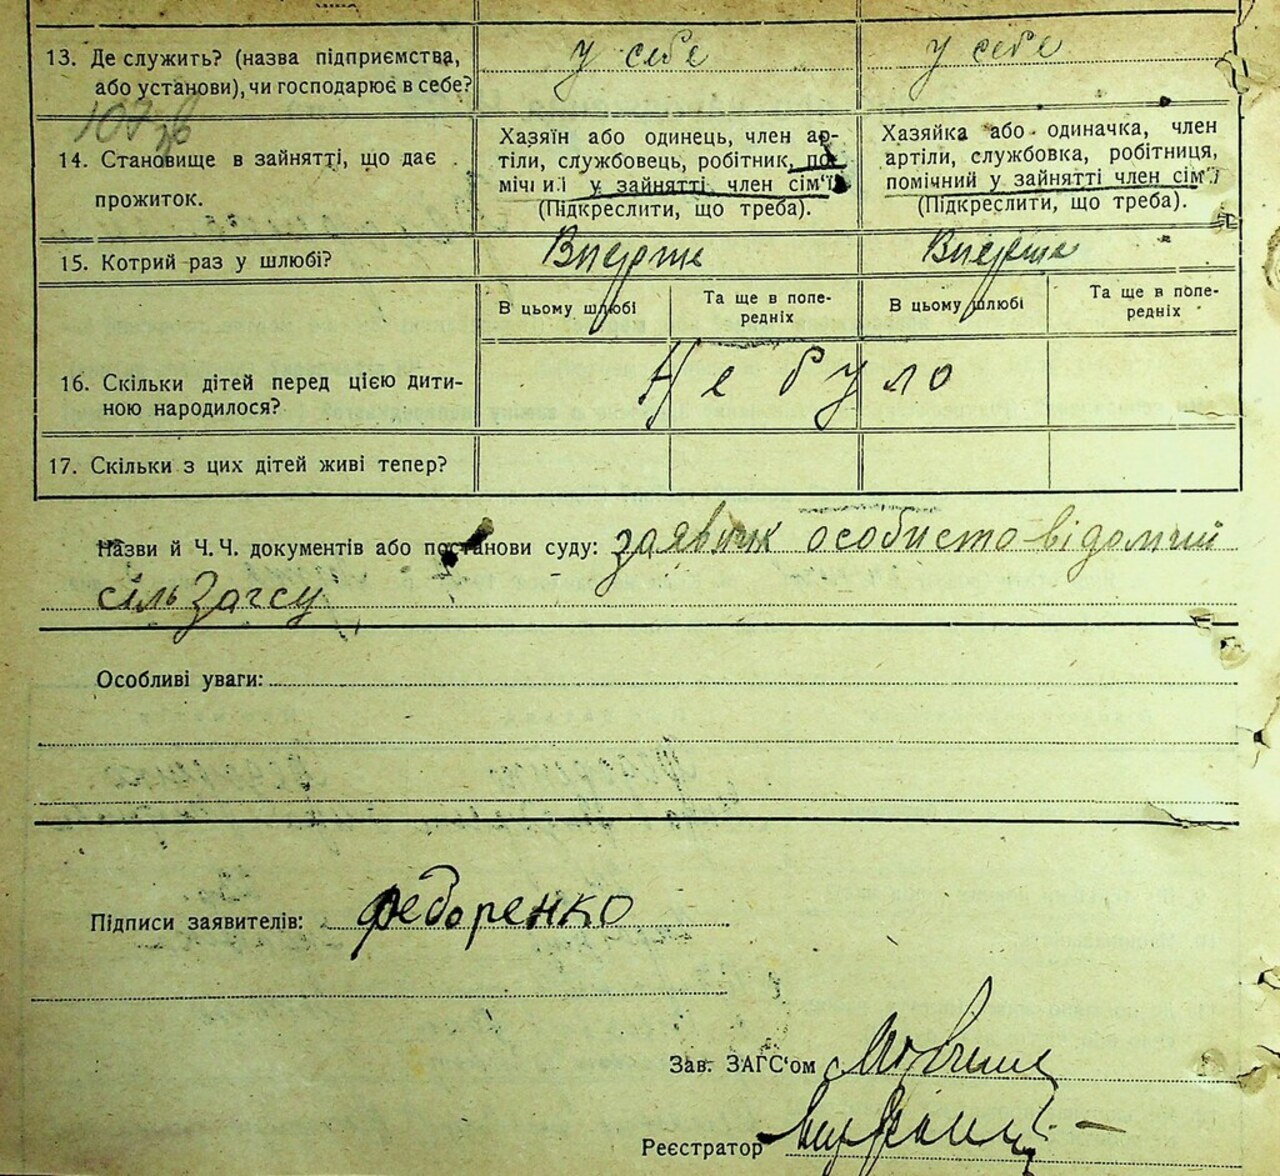 13. Де служить? (назва підприємства, у себе у себе
або установи), чи господарює в себе?
107 зв
14. Становище в зайнятті, що дає
прожиток.
Хазяїн або одинець, член ар-
тілі, службовець, робітник, по-
мічний у зайнятті член сім'ї
(Підкреслити, що треба).
Хазяйка або одиначка, член
артілі, службовка, робітниця,
помічний у зайнятті член сім'ї
(Підкреслити, що треба).
15. Котрий раз у шлюбі? Вперше Вперше
В цьому шлюбі
Та ще в попе-
редніх
В цьому шлюбі
Та ще в попе-
редніх
16. Скільки дітей перед цією дити-
ною народилося?
Не було
17. Скільки з цих дітей живі тепер?
Назви й Ч. Ч. документів або постанови суду: заявник особисто відомий
сільЗагсу
Особливі уваги:
Підписи заявителів: Федоренко
Зав. ЗАГС'ом
Реєстратор